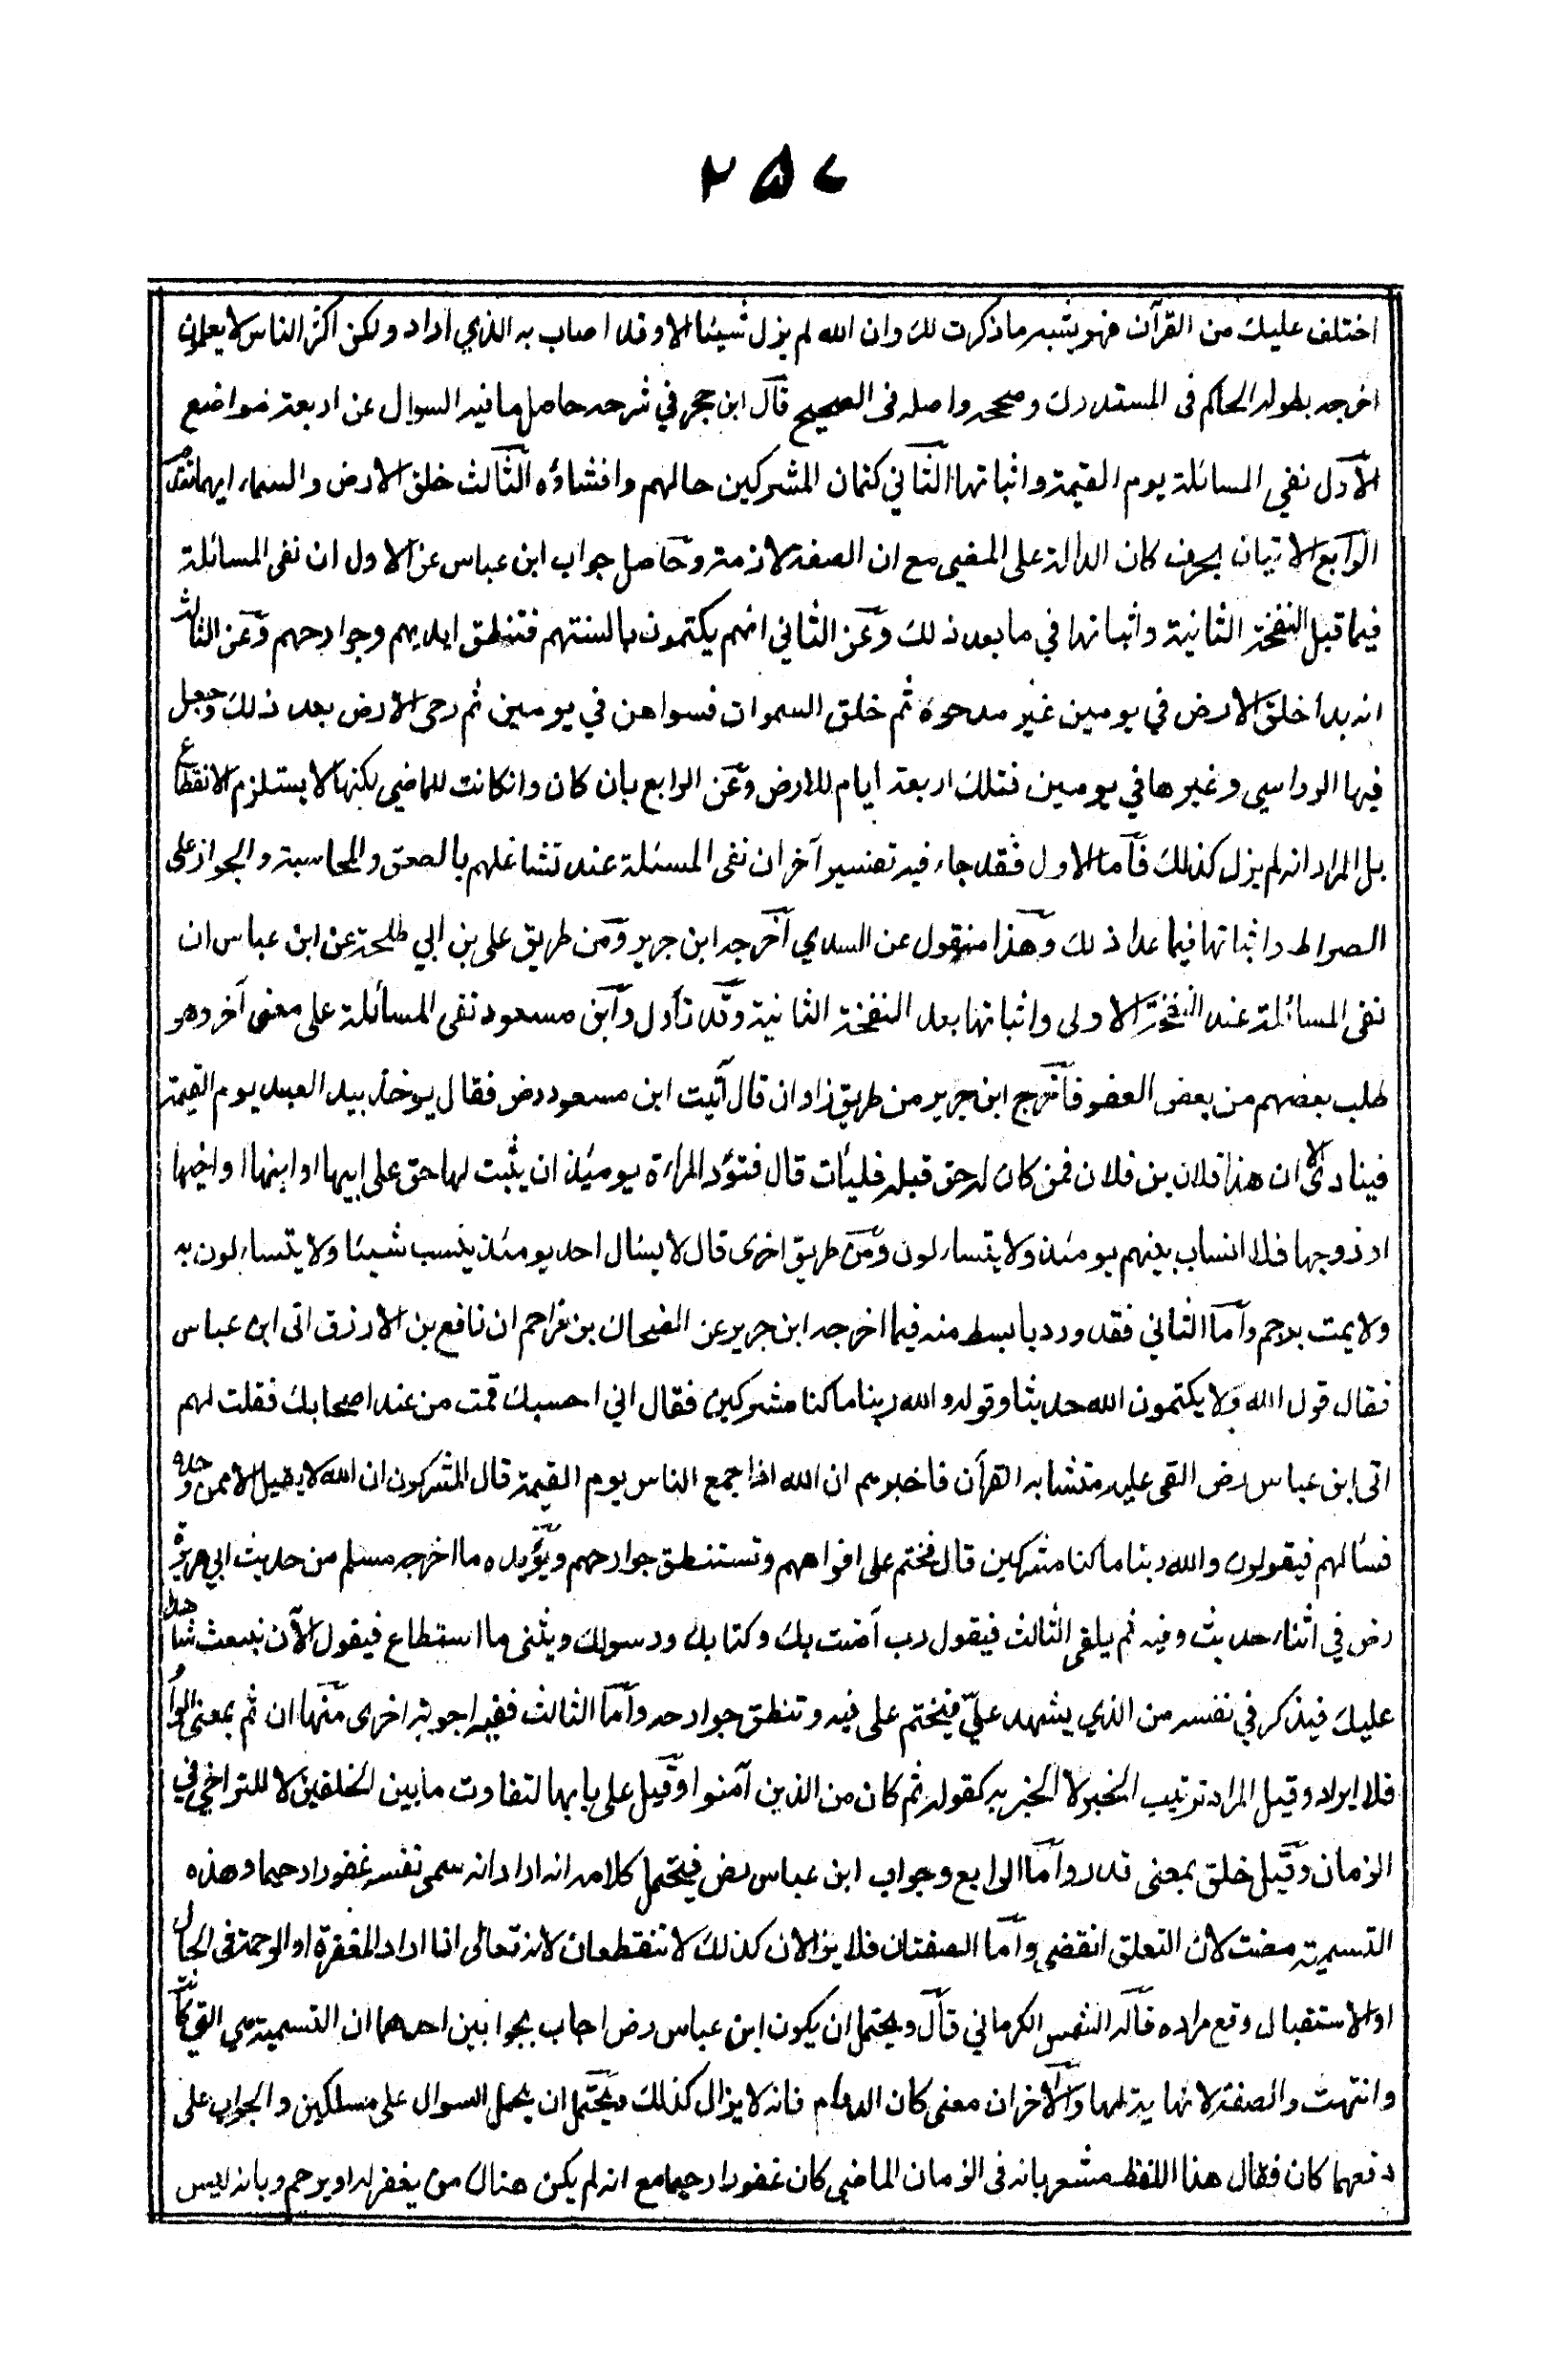 ٢٥٧
اختلف عليك من القرآن فهو يشبه ما ذكرت لك وان الله لم ينزل شيئا الا وقد اصاب به الذي اراد ولكن اكثر الناس لا يعلمون
اخرجه بطوله الحاكم فى المستدرك وصححه واصله فى الصحيح قال ابن حجر في شرحه حاصل ما فيه السوال عن اربعة مواضع
الاول نفي المسائلة يوم القيمة واثباتها الثاني كتمان المشركين حالهم وافشاؤه الثالث خلق الارض والسماء ايهما تقدم
الرابع الاتيان بحرف كان الدالة على المضي مع ان الصفة لازمة وحاصل جواب ابن عباس عن الاول ان نفى المسائلة
فيما قبل النفخة الثانية واثباتها في ما بعد ذلك وعن الثاني انهم يكتمون بالسنتهم فتنطق ايديهم وجوارحهم وعن الثالث
انه بدا خلق الارض في يومين غير مدحوة ثم خلق السموات فسواهن في يومين ثم دحى الارض بعد ذلك وجعل
فيها الرواسي وغيرها في يومين فتلك اربعة أيام للارض وعن الرابع بان كان وانكانت للماضي لكنها لا يستلزم الانقطاع
بل المراد انه لم يزل كذلك فاما الاول فقد جاء فيه تفسير آخر ان نفى المسئلة عند تشاغلهم بالصعق والمحاسبة والجواز على
الصراط واثباتها فيما عدا ذلك وهذا منقول عن السدي آخرجه ابن جرير ومن طريق على بن ابي طلحة عن ابن عباس ان
نفى المسائلة عند النفخة الاولى واثباتها بعد النفخة الثانية وقد تأول وابن مسعود نفى المسائلة على معنى آخر وهو
طلب بعضهم من بعض العفو فاخرج ابن جرير من طريق زاوان قال آتيت ابن مسعود رض فقال يوخذ بيد العبد يوم القيمة
فينادى الا ان هذا فلان بن فلان فمن كان له حق قبله فليأت قال فتود المراءة يوميئذ ان يثبت لها حق على ابيها او ابنها او اخيها
او زوجها فلا انساب بينهم يومئذ ولا يتساءلون ومن طريق اخرى قال لا يسال احد يومئذ بنسب شيئا ولا يتساءلون به
ولا يمت برحم واما الثاني فقد ورد بابسط منه فيما اخرجه ابن جرير عن الضحاك بن مزاحم ان نافع بن الازرق اتى ابن عباس
فقال قول الله ولا يكتمون الله حديثا وقوله والله ربنا ما كنا مشركين فقال اني احسبك قمت من عند اصحابك فقلت لهم
اتى ابن عباس رض القى عليه متشابه القرأن فاخبرهم ان الله اذا جمع الناس يوم القيمة قال المشركون ان الله لا يقبل الا ممن وحده
فسألهم فيقولون والله ربنا ما كنا مشركين قال فختم على افواههم وتستنطق جوارحهم ويؤيده ما اخرجه مسلم من حديث ابي هريرة
رض في اثناء حديث وفيه ثم يلقى الثالث فيقول رب آمنت بك وكتابك ورسولك ويثنى ما استطاع فيقول الآن نبعث شاهدا
عليك فيذكر في نفسه من الذي يشهد عليّ فيختم على فيه وتنطق جوارحه واما الثالث ففيه اجوبة اخرى منها ان ثم بمعنى الواو
فلا ايراد وقيل المراد ترتيب الخبر لا المخبر به كقوله ثم كان من الذين آمنوا وقيل على بابها لتفاوت ما بين الخلقين لا للتراخي في
الزمان وقيل خلق بمعنى قدر واما الرابع وجواب ابن عباس رض فيحتمل كلامه انه اراد انه سمى نفسه غفورا رحيما وهذه
التسمية مضت لان التعلق انقضى واما الصفتان فلا يزالان كذلك لا تنقطعان لانه تعالى اذا اراد المغفرة او الرحمة فى الحال
او الاستقبال وقع مراده قاله الشمس الكرماني قال ويحتمل ان يكون ابن عباس رض اجاب بجوابين احدهما ان التسمية هي التي كانت
وانتهت والصفة لا نهاية لها والآخر ان معنى كان الدوام فانه لا يزال كذلك ويحتمل ان يحمل السوال على مسلكين والجواب على
دفعهما كان فقال هذا اللفظ مشعر بانه فى الزمان الماضي كان غفورا رحيما مع انه لم يكن هناك من يغفر له او يرحم وبانه ليس